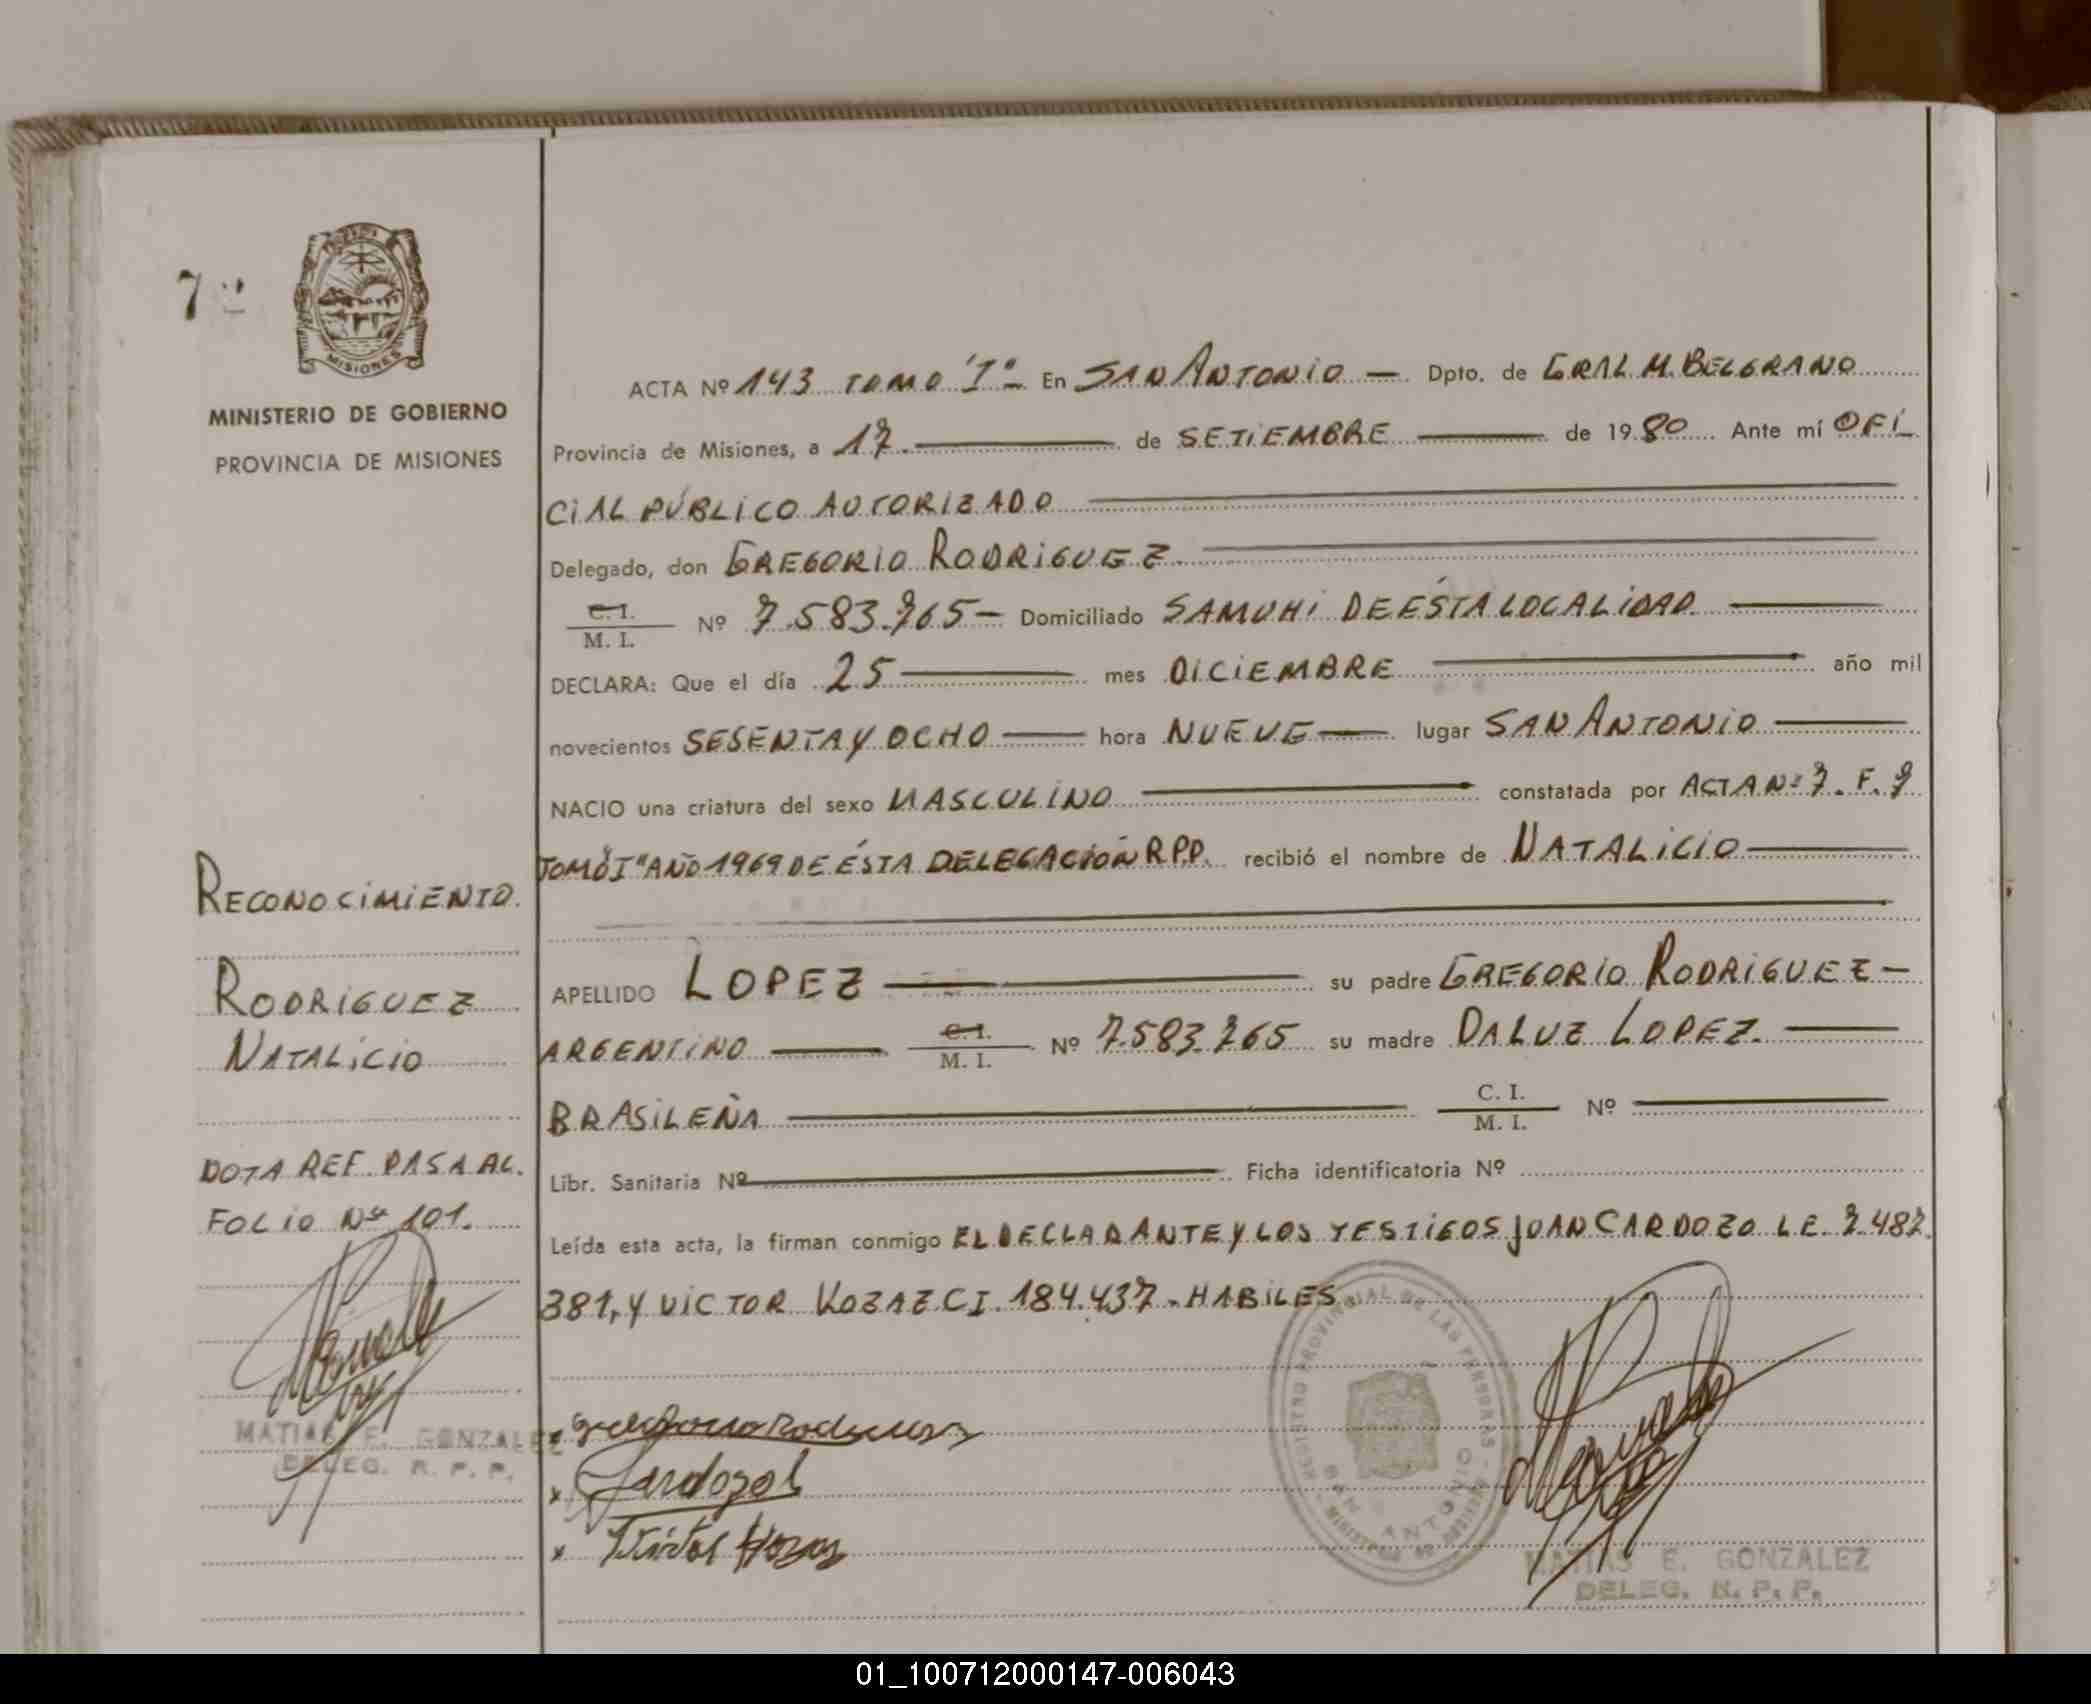 7
MISIONES
MINISTERIO DE GOBIERNO
PROVINCIA DE MISIONES
ACTA Nº 143 TOMO "I" En SAN ANTONIO — Dpto. de GRAL M. BELGRANO
Provincia de Misiones, a 17 de SETIEMBRE de 1980 Ante mí OFI
CIAL PÚBLICO AUTORIZADO
Delegado, don GREGORIO RODRIGUEZ
C. I.
M. I. Nº 7.583.765 — Domiciliado SAMUHI DE ÉSTA LOCALIDAD
DECLARA: Que el día 25 mes DICIEMBRE año mil
novecientos SESENTA Y OCHO hora NUEVE lugar SAN ANTONIO
NACIO una criatura del sexo MASCULINO constatada por ACTA Nº 7. F. 7
TOMO "I" AÑO 1969 DE ÉSTA DELEGACIÓN R.P.P. recibió el nombre de NATALICIO
APELLIDO LOPEZ su padre GREGORIO RODRIGUEZ —
ARGENTINO C. I. M. I. Nº 7.583.765 su madre DALUZ LOPEZ.
BRASILEÑA C. I. M. I. Nº
Libr. Sanitaria Nº Ficha identificatoria Nº
Leída esta acta, la firman conmigo EL DECLARANTE Y LOS TESTIGOS JUAN CARDOZO L.E. 7.487.
381, Y VICTOR KOZAZ C.I. 184.437. HABILES
RECONOCIMIENTO.
RODRIGUEZ
NATALICIO
NOTA REF. PASA AL
FOLIO Nº 101.
MATIAS E. GONZALEZ
DELEG. R. P. P.
x
x Cardozo
x
REGISTRO PROVINCIAL DE LAS PERSONAS
SAN ANTONIO
MATIAS E. GONZALEZ
DELEG. R. P. P.
01_100712000147-006043